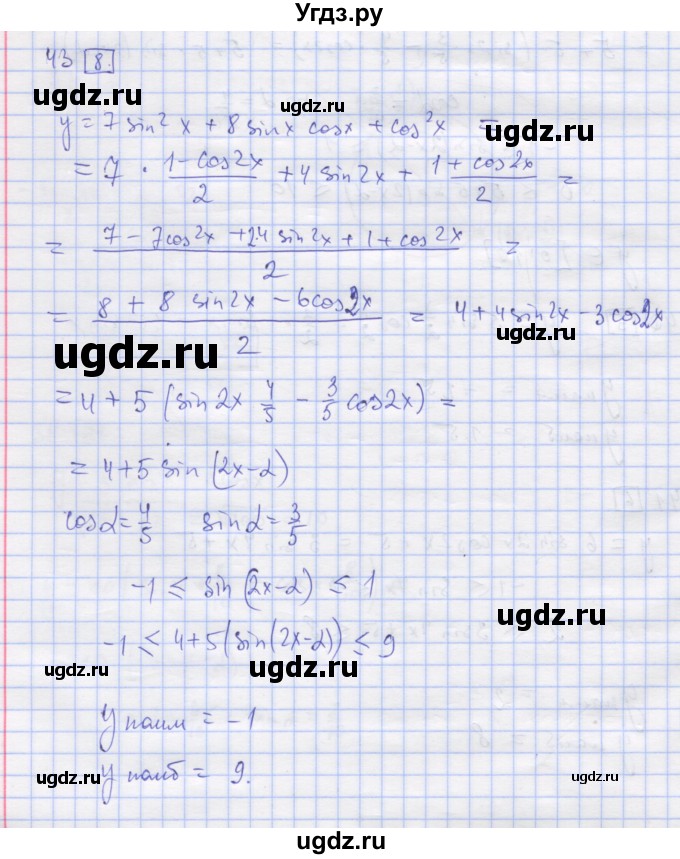 Угдз.ру
43 8.
ugdz.ru ugdz.ru
y = 7 sin² x + 8 sin x cos x + cos² x =
ugdz.ru
= 7 · (1 - cos 2x)/2 + 4 sin 2x + (1 + cos 2x)/2 =
= (7 - 7cos 2x + 2·4 sin 2x + 1 + cos 2x)/2 =
= (8 + 8 sin 2x - 6cos 2x)/2 = 4 + 4 sin 2x - 3 cos 2x
ugdz.ru ugdz.ru
= 4 + 5 (sin 2x 4/5 - 3/5 cos 2x) =
= 4 + 5 sin (2x - α)
cos α = 4/5 sin α = 3/5
-1 ≤ sin (2x - α) ≤ 1
ugdz.ru
-1 ≤ 4 + 5(sin(2x - α)) ≤ 9
ugdz.ru ugdz.ru
y наим = -1
y наиб = 9.
ugdz.ru ugdz.ru ugdz.ru
ugdz.ru